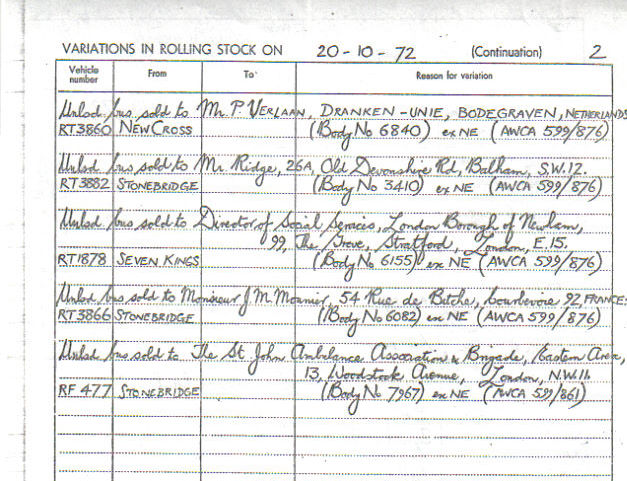 VARIATIONS IN ROLLING STOCK ON 20-10-72 (Continuation) 2
Vehicle number From To Reason for variation
Unlsd bus sold to Mr. P. VERLAAN, DRANKEN-UNIE, BODEGRAVEN, NETHERLANDS
RT3860 NEW CROSS (Body No 6840) ex NE (AWCA 599/876)
Unlsd bus sold to Mr. Ridge, 26A, Old Devonshire Rd, Balham, S.W.12.
RT3882 STONEBRIDGE (Body No 3410) ex NE (AWCA 599/876)
Unlsd bus sold to Director of Social Services, London Borough of Newham,
99, The Grove, Stratford, London, E.15.
RT1878 SEVEN KINGS (Body No 6155) ex NE (AWCA 599/876)
Unlsd bus sold to Monsieur J. M. Mounier, 54 Rue de Bitche, Courbevoie 92, FRANCE
RT3866 STONEBRIDGE (Body No 6082) ex NE (AWCA 599/876)
Unlsd bus sold to The St John Ambulance Association & Brigade, Eastern Area,
13, Woodstock Avenue, London, N.W.11.
RF 477 STONEBRIDGE (Body No 7967) ex NE (AWCA 599/861)